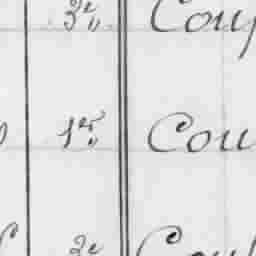 3e„ Coup
1er„ Cou
2e Coup